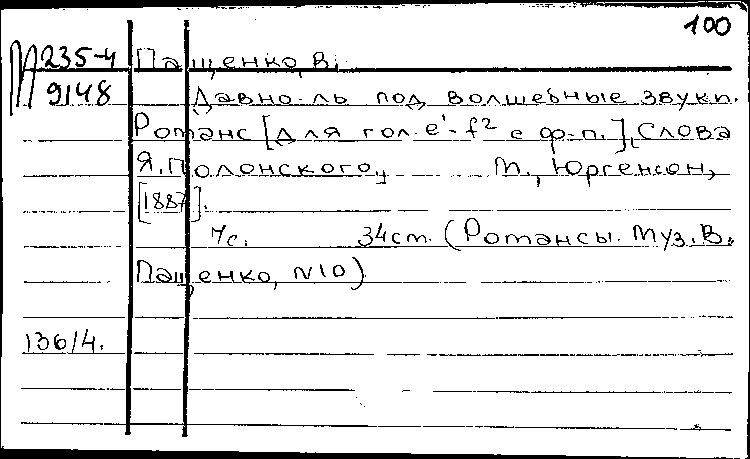 100
М 235-4 Пащенко, В.
9148 Давно-ль под волшебные звуки.
Романс [для гол. e'-f² с ф-п.], Слова
Я. Полонского, М., Юргенсон,
[1887].
7с. 34см. (Романсы. Муз. В.
Пащенко, N10)
136/4.